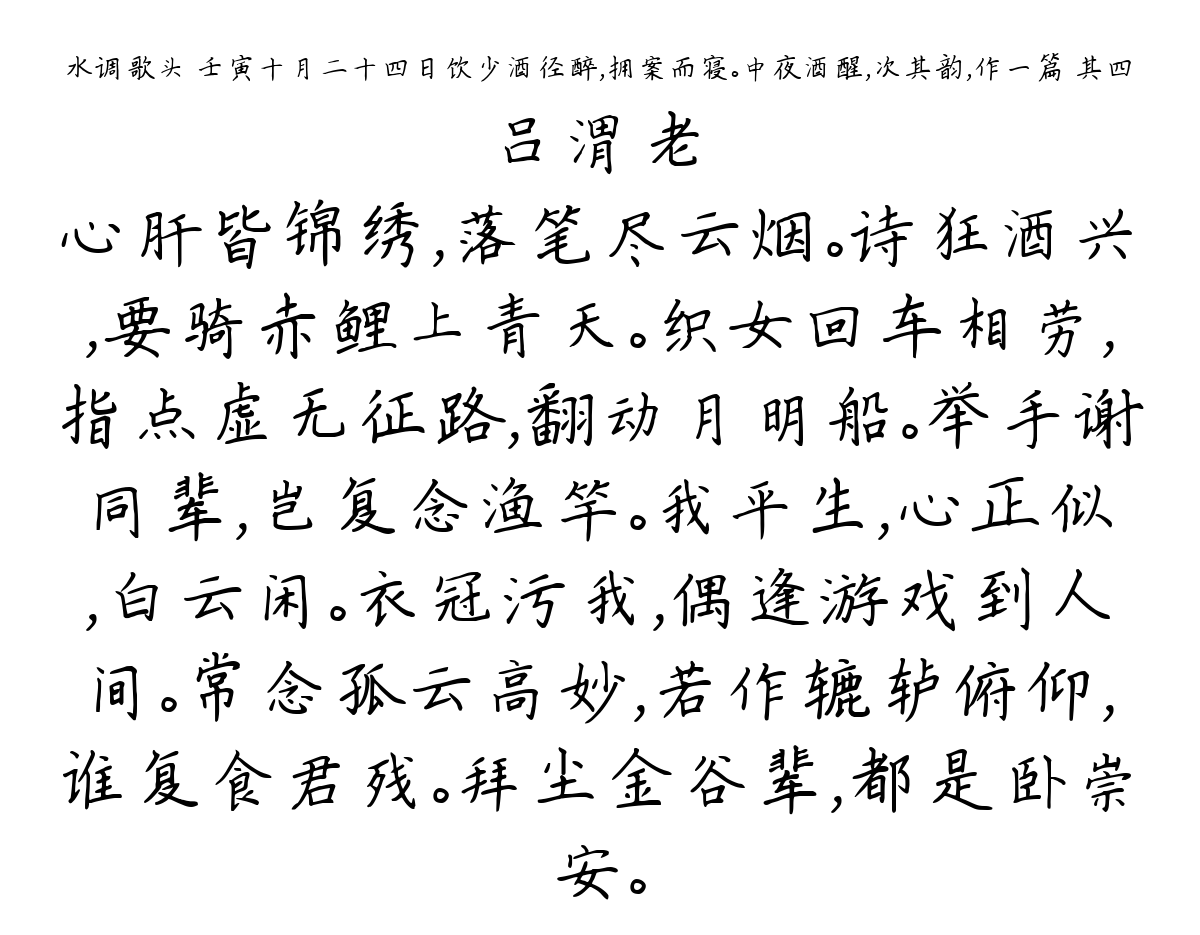 水调歌头 壬寅十月二十四日饮少酒径醉,拥案而寝。中夜酒醒,次其韵,作一篇 其四
吕渭老
心肝皆锦绣,落笔尽云烟。诗狂酒兴
,要骑赤鲤上青天。织女回车相劳,
指点虚无征路,翻动月明船。举手谢
同辈,岂复念渔竿。我平生,心正似
,白云闲。衣冠污我,偶逢游戏到人
间。常念孤云高妙,若作辘轳俯仰,
谁复食君残。拜尘金谷辈,都是卧崇
安。